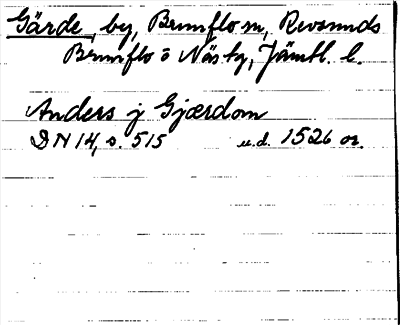 Gärde, by, Brunflo sn, Revsunds
Brunflo o Näs tg, Jämtl. l.
Anders j Gjærdom
DN 14, s. 515 u.d. 1526 or.